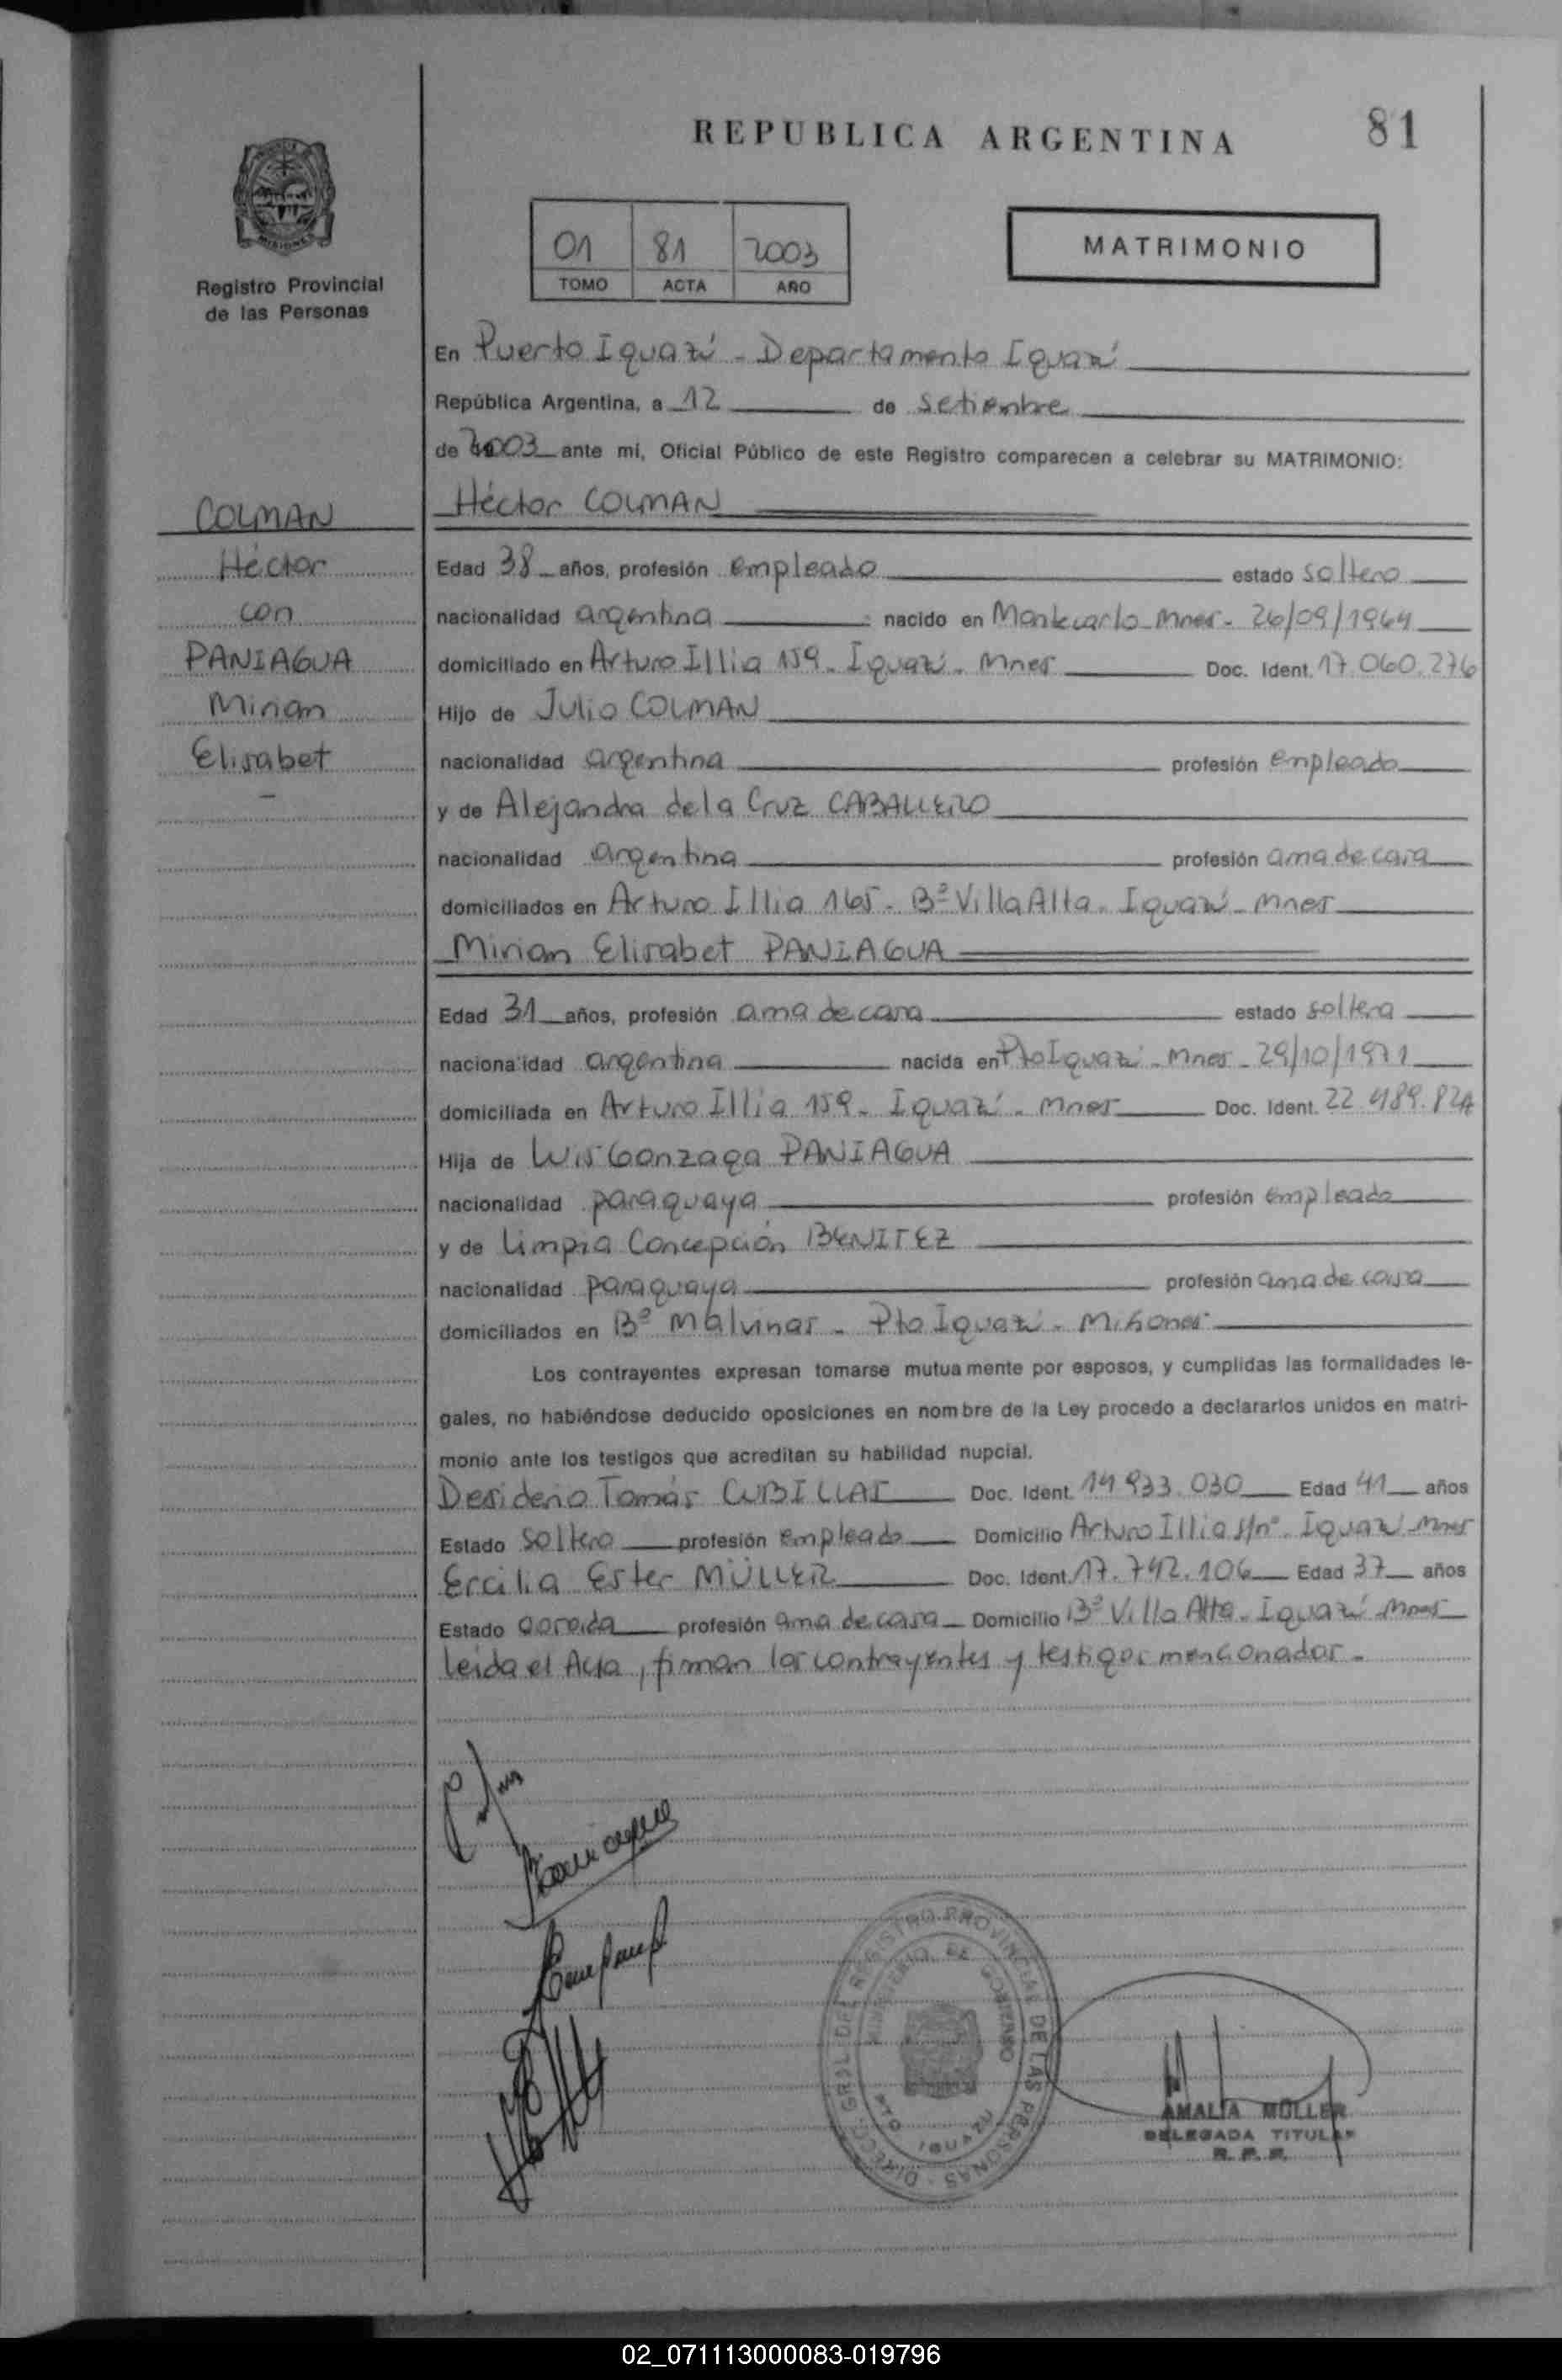 REPUBLICA ARGENTINA
81
Registro Provincial
de las Personas
01 81 2003
TOMO ACTA AÑO
MATRIMONIO
En Puerto Iguazú - Departamento Iguazú
República Argentina, a 12 de Setiembre
de 2003 ante mí, Oficial Público de este Registro comparecen a celebrar su MATRIMONIO:
COLMAN
Héctor
con
PANIAGUA
Mirian
Elisabet
Héctor COLMAN
Edad 38 años, profesión empleado estado soltero
nacionalidad argentina nacido en Montecarlo Mnes - 26/09/1964
domiciliado en Arturo Illia 159 - Iguazú - Mnes Doc. Ident. 17.060.276
Hijo de Julio COLMAN
nacionalidad argentina profesión empleado
y de Alejandra de la Cruz CABALLERO
nacionalidad argentina profesión ama de casa
domiciliados en Arturo Illia 165 - Bº Villa Alta - Iguazú - Mnes
Mirian Elisabet PANIAGUA
Edad 31 años, profesión ama de casa estado soltera
nacionalidad argentina nacida en Pto Iguazú - Mnes - 29/10/1971
domiciliada en Arturo Illia 159 - Iguazú - Mnes Doc. Ident. 22.489.824
Hija de Luis Gonzaga PANIAGUA
nacionalidad paraguaya profesión empleado
y de Limpia Concepción BENITEZ
nacionalidad paraguaya profesión ama de casa
domiciliados en Bº Malvinas - Pto Iguazú - Misiones
Los contrayentes expresan tomarse mutuamente por esposos, y cumplidas las formalidades le-
gales, no habiéndose deducido oposiciones en nombre de la Ley procedo a declararlos unidos en matri-
monio ante los testigos que acreditan su habilidad nupcial.
Desiderio Tomás CUBILLAS Doc. Ident. 14.933.030 Edad 41 años
Estado soltero profesión empleado Domicilio Arturo Illia s/nº - Iguazú Mnes
Ercilia Ester MÜLLER Doc. Ident. 17.742.106 Edad 37 años
Estado profesión ama de casa Domicilio Bº Villa Alta - Iguazú Mnes
leida el Acta, firman los contrayentes y testigos mencionados -
DIRECC. GRAL. DEL REGISTRO PROVINCIAL DE LAS PERSONAS
MINISTERIO DE GOBIERNO
PTO IGUAZU
AMALIA MÜLLER
DELEGADA TITULAR
R. P. P.
02_071113000083-019796